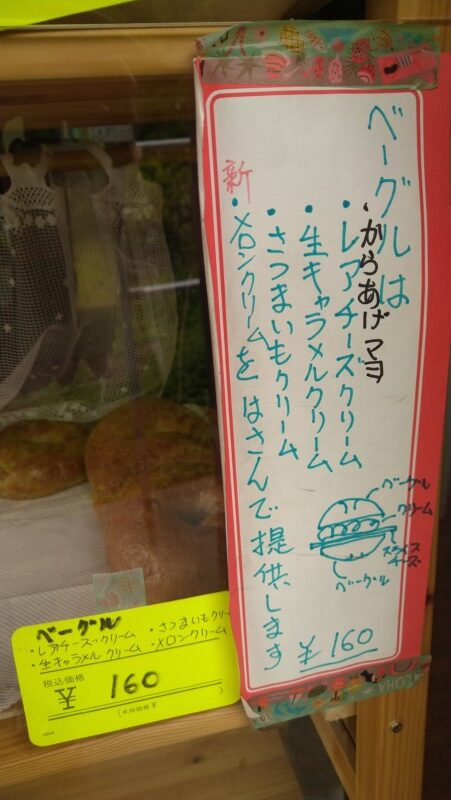 ベーグルは
・からあげマヨ
・レアチーズクリーム
・生キャラメルクリーム
・さつまいもクリーム
新
・メロンクリームを はさんで提供します
ベーグル
クリーム
スライス
チーズ
ベーグル
¥160
ベーグル
・レアチーズクリーム ・さつまいもクリーム
・生キャラメルクリーム ・メロンクリーム
税込価格
¥ 160
(本体価格¥ )